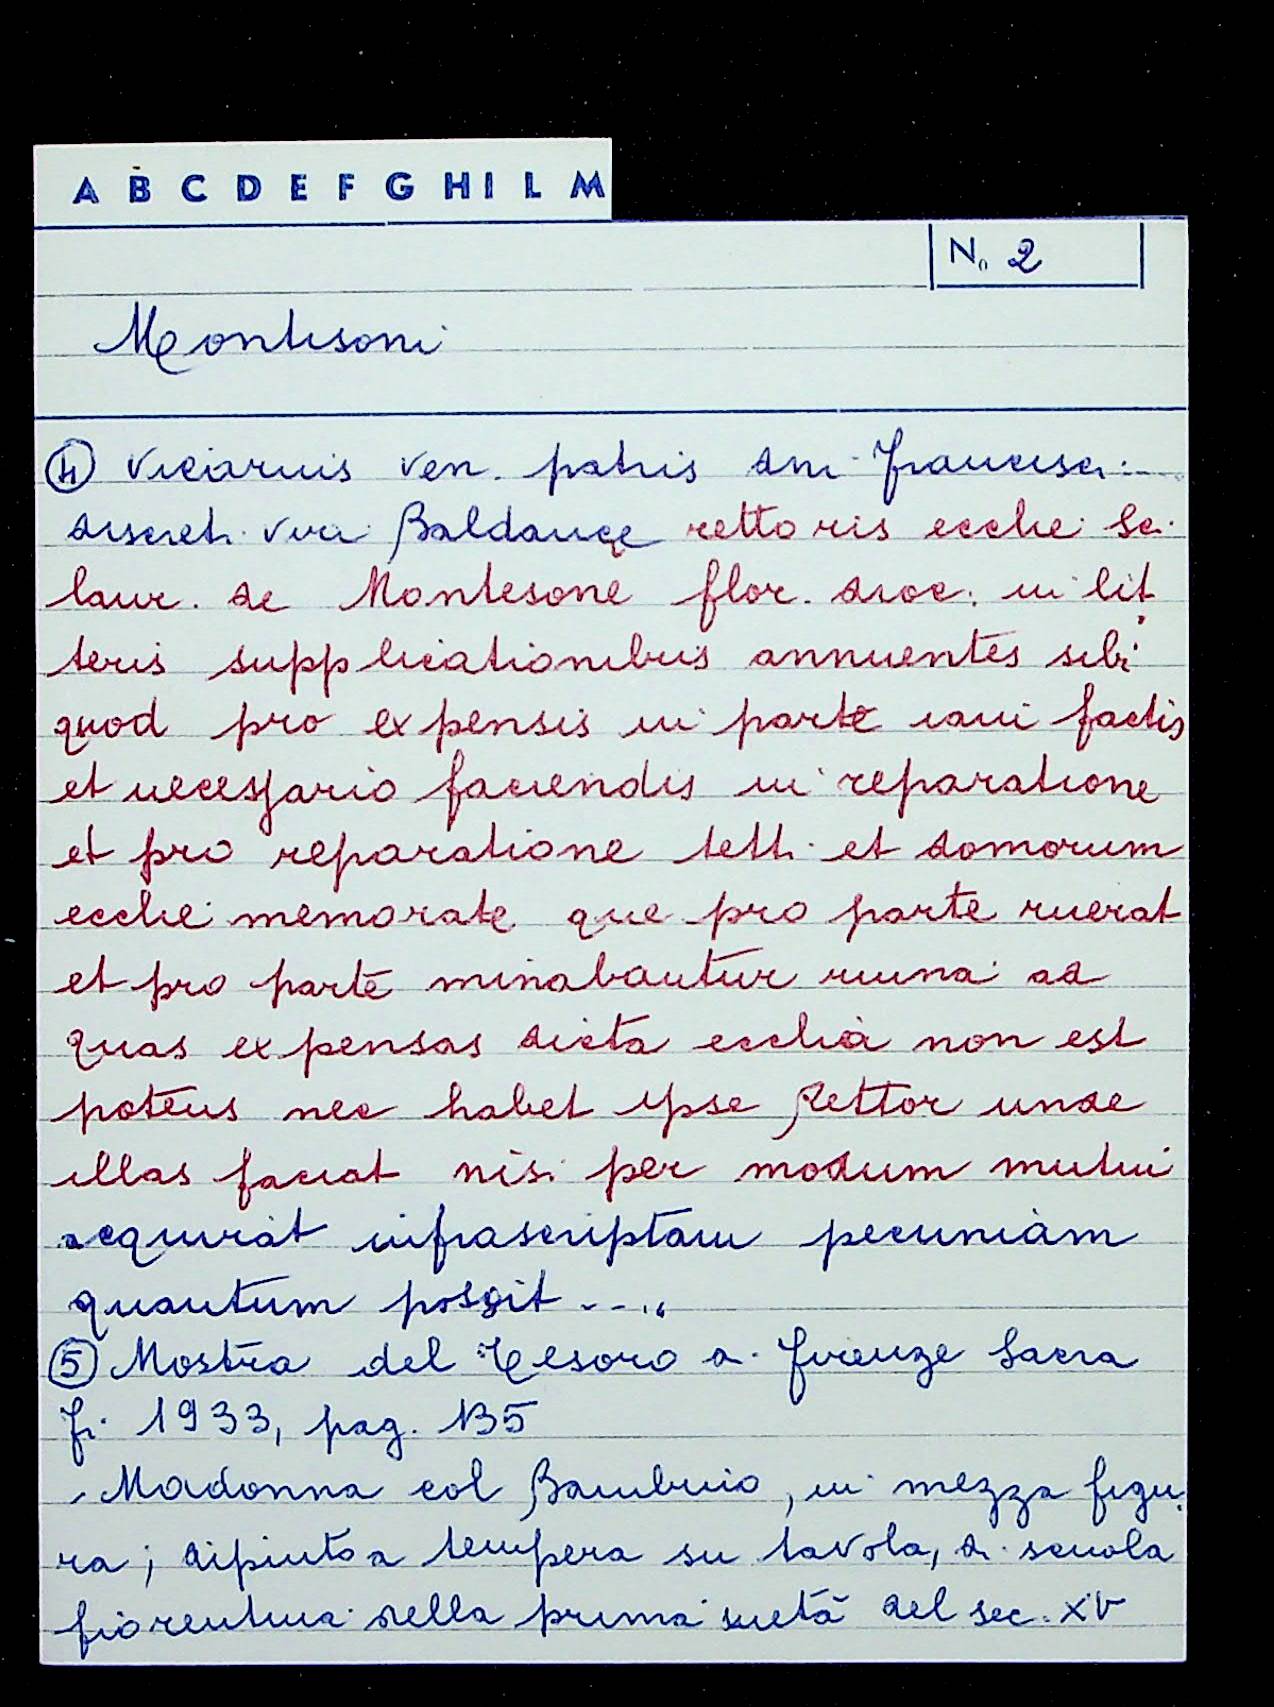 A B C D E F G H I L M
N. 2
Montisoni
④ Vicarius ven. patris dni Francisci...
discreti viri Baldance rettoris ecclie Sc.
laur. de Montesone flor. dioc. in lit
teris supplicationibus annuentes sibi
quod pro expensis in parte iam factis
et necessario faciendis in reparatione
et pro reparatione tetti et domorum
ecclie memorate que pro parte ruerat
et pro parte minabantur ruina ad
quas expensas dicta ecclia non est
potens nec habet ipse Rettor unde
illas faciat nisi per modum mutui
acquirat infrascriptam pecuniam
quantum possit ...."
⑤ Mostra del Tesoro di Firenze Sacra
Fi. 1933, pag. 135
Madonna col Bambino, in mezza figu
ra; dipinto a tempera su tavola, di scuola
fiorentina della prima metà del sec. XV